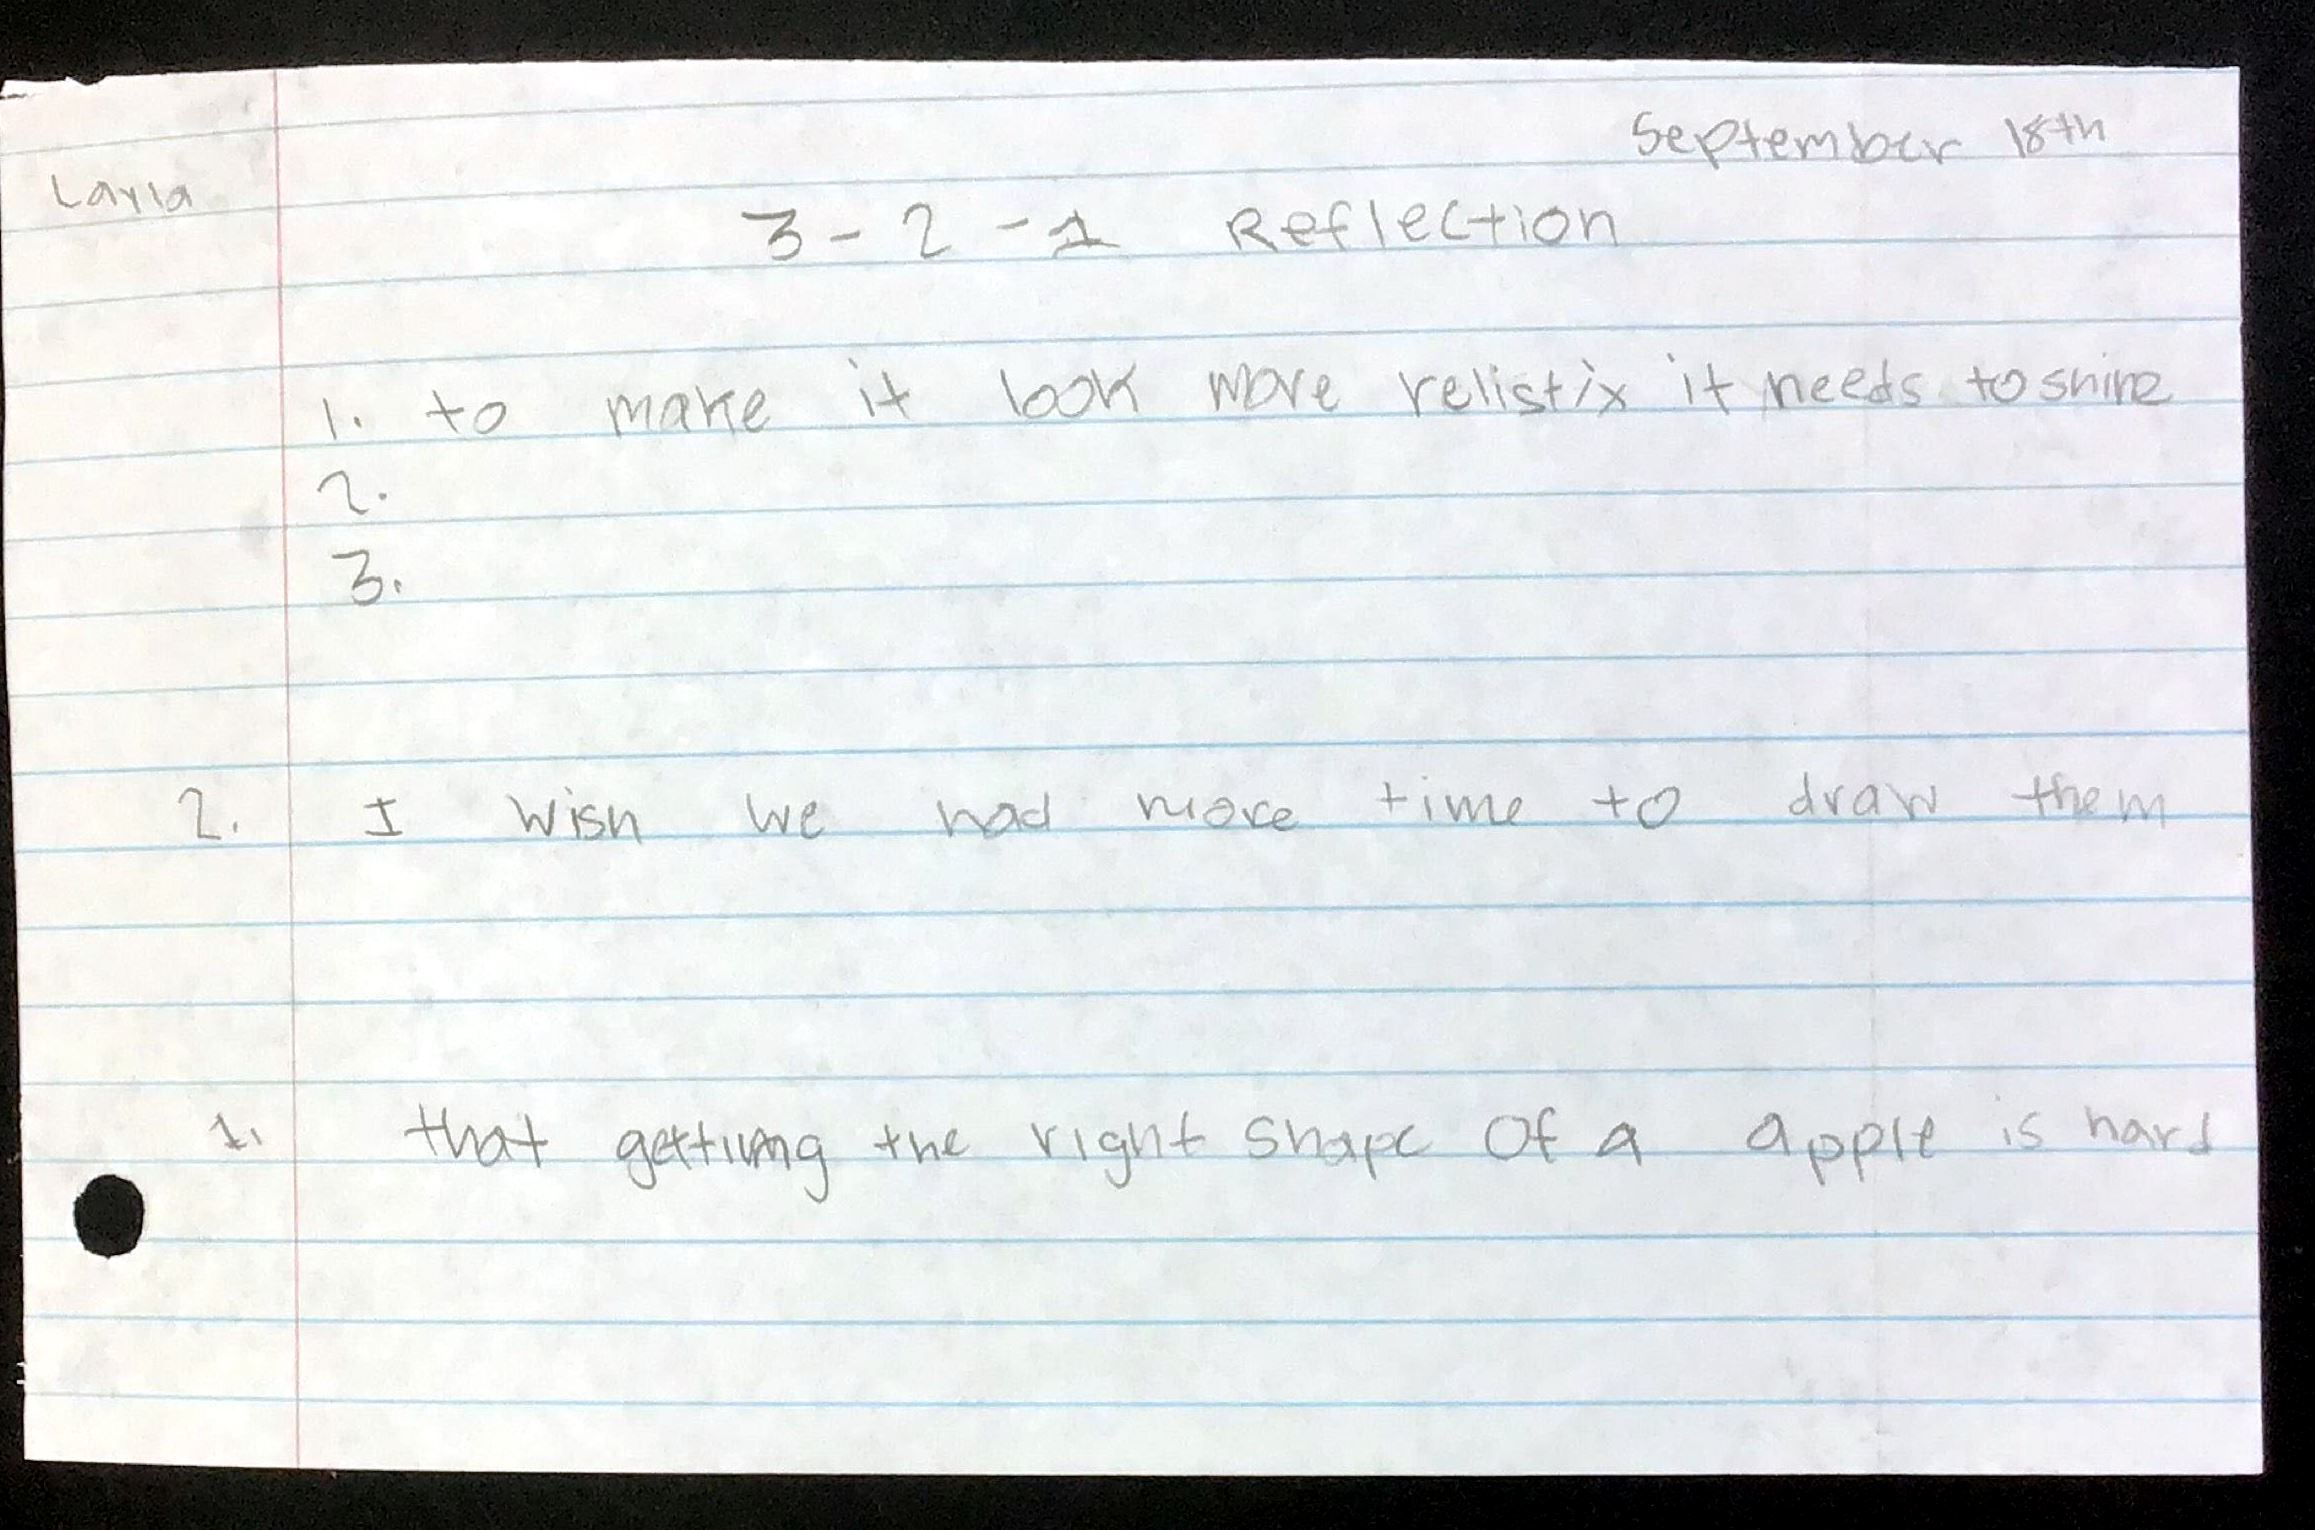 September 18th
Layla
3-2-1 Reflection
1. to make it look more relistix it needs to shine
2.
3.
2. I wish we had more time to draw them
1. that getting the right shape of a apple is hard